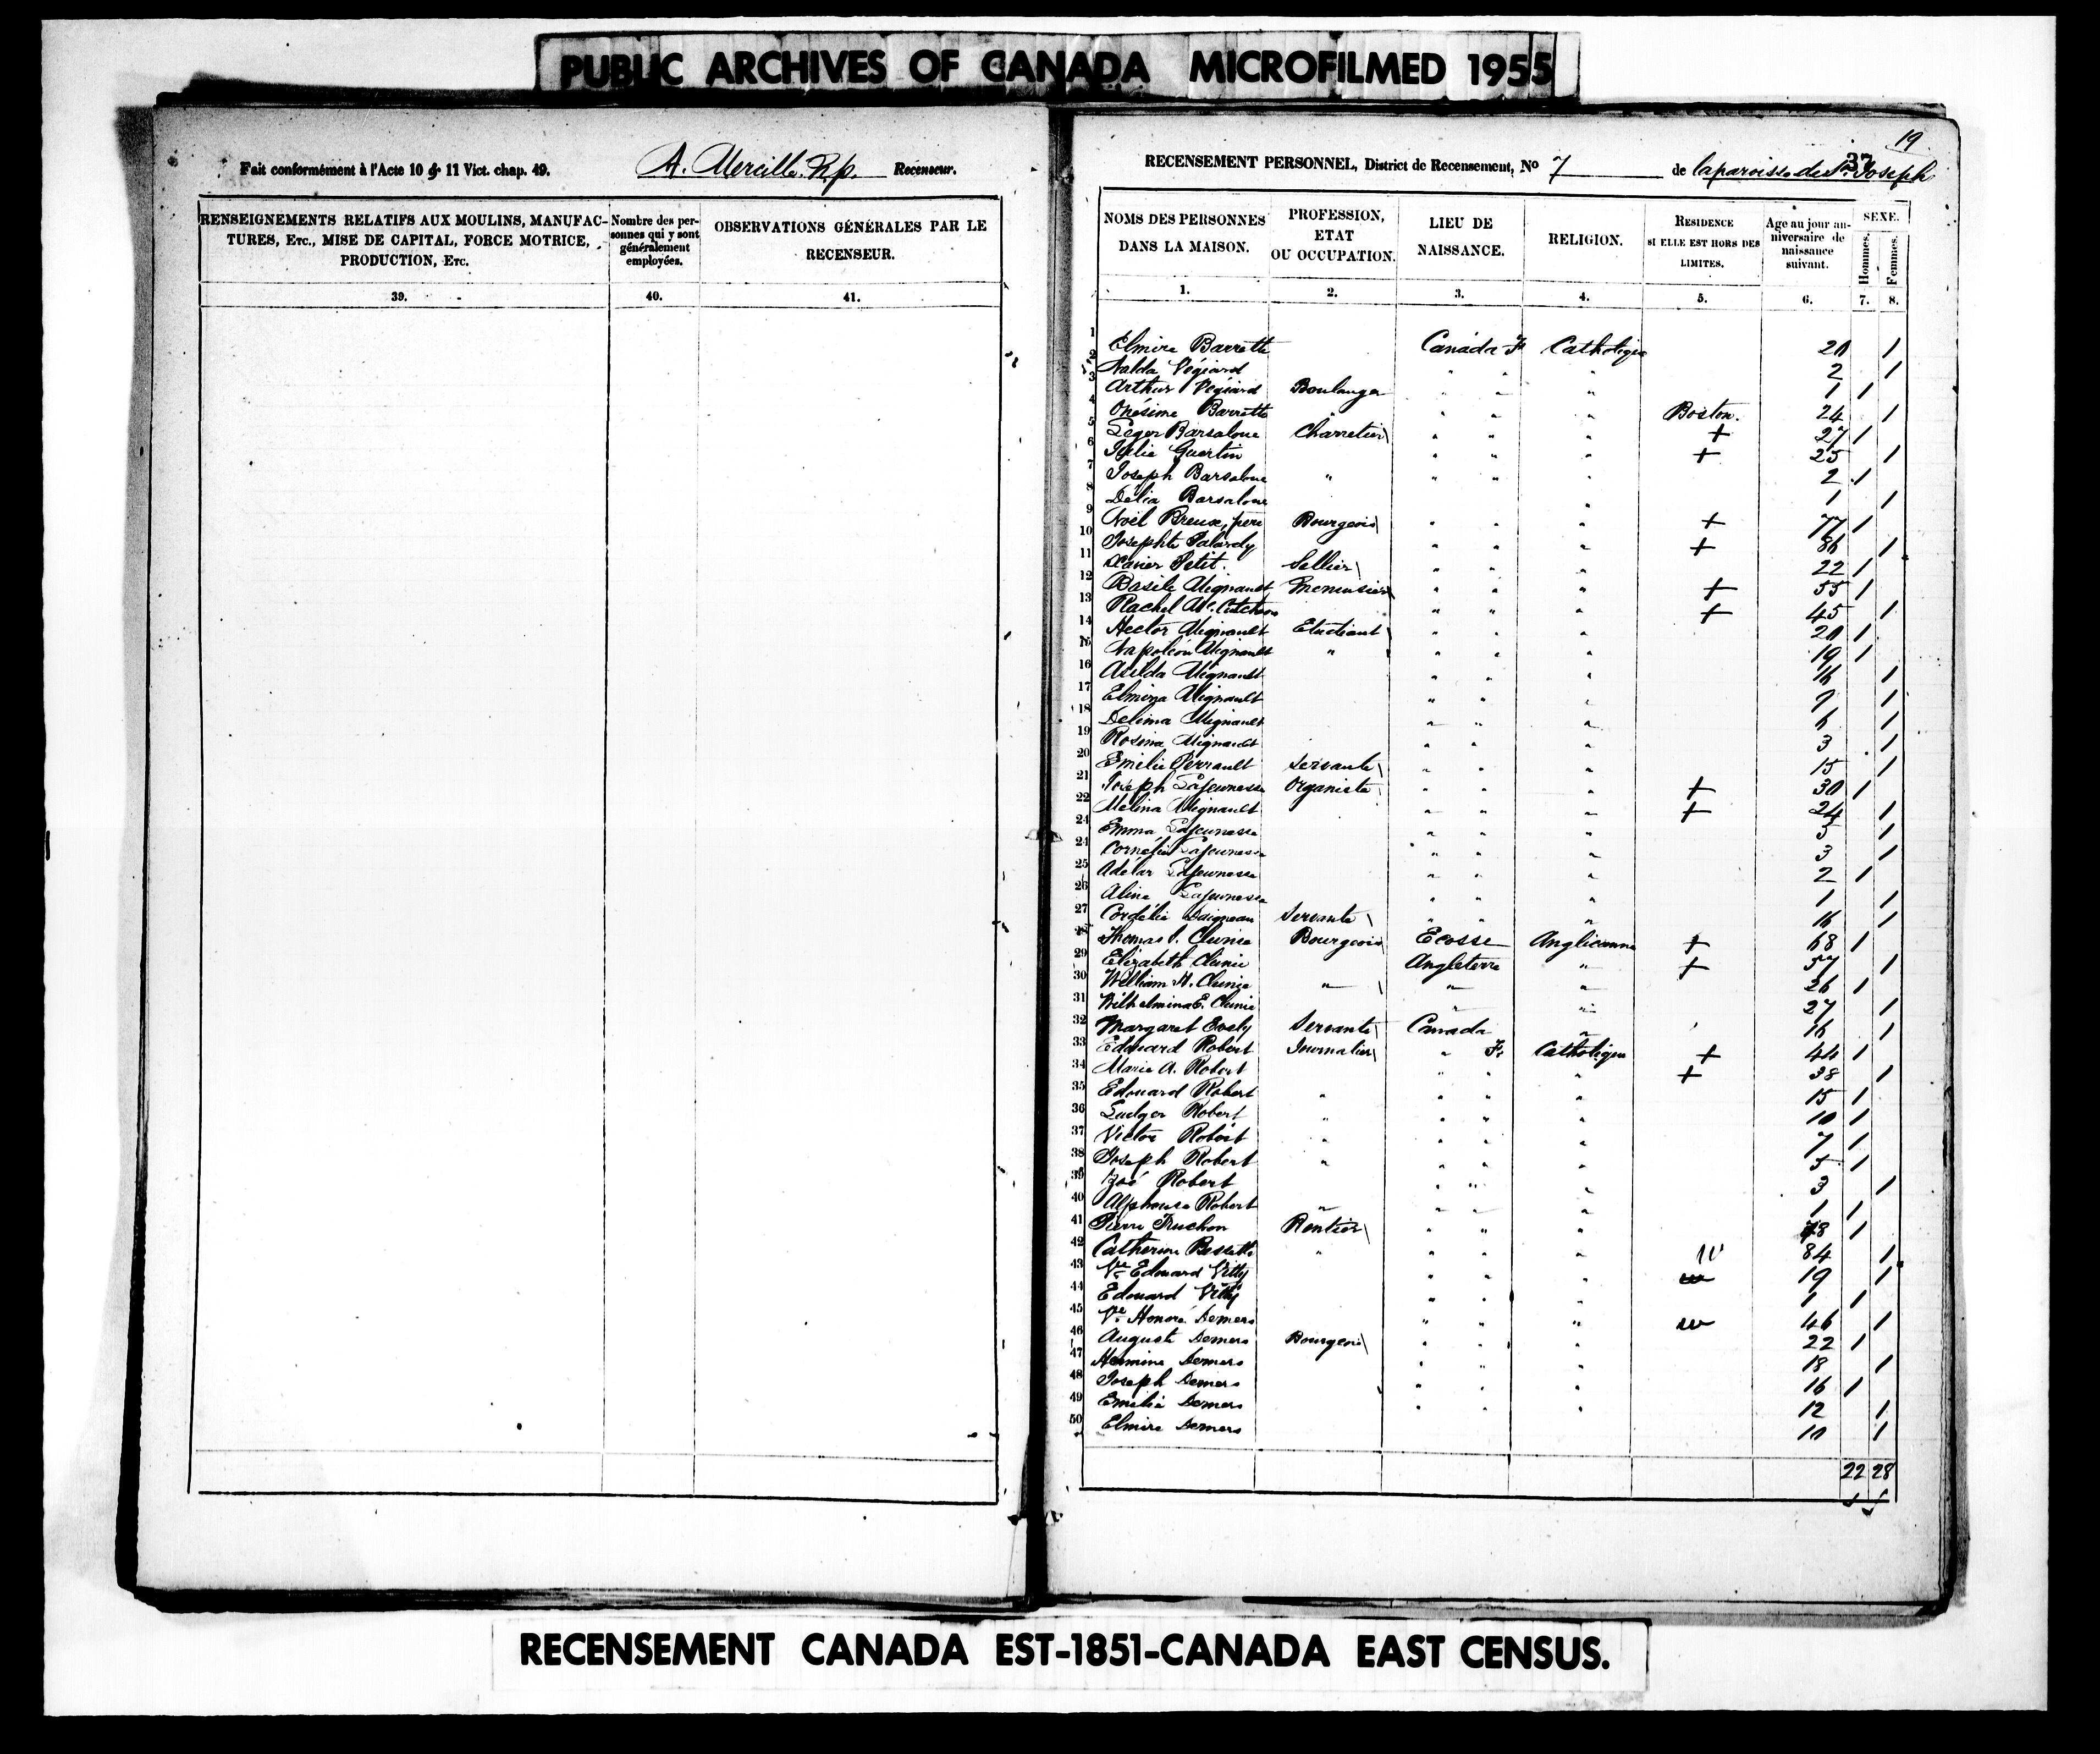 PUBLIC ARCHIVES OF CANADA MICROFILMED 1955
Fait conformément à l'Acte 10 & 11 Vict. chap. 49. A. Recenseur.
RENSEIGNEMENTS RELATIFS AUX MOULINS, MANUFAC-
TURES, Etc., MISE DE CAPITAL, FORCE MOTRICE,
PRODUCTION, Etc.
Nombre des per-
sonnes qui y sont
généralement
employées.
OBSERVATIONS GÉNÉRALES PAR LE
RECENSEUR.
39. 40. 41.
19
37
RECENSEMENT PERSONNEL, District de Recensement, No 7 de la paroisse de St Joseph
NOMS DES PERSONNES
DANS LA MAISON.
PROFESSION,
ETAT
OU OCCUPATION.
LIEU DE
NAISSANCE.
RELIGION.
RESIDENCE
SI ELLE EST HORS DES
LIMITES.
Age au jour an-
niversaire de
naissance
suivant.
SEXE.
Hommes.
Femmes.
1. 2. 3. 4. 5. 6. 7. 8.
1 Elmire Barrette Canada F Catholique 20 1
2 Végiard " " " 2 1
3 Arthur Végiard Boulanger " " " 1 1
4 Onésime Barrette " " " " Boston. 24 1
5 Leger Barsaloue Charretier " " " + 27 1
6 Julie Guertin " " " + 25 1
7 Joseph Barsaloue " " " " 2 1
8 Délia Barsaloue " 1 1
9 Noël Breux, père Bourgeois " " " + 77 1
10 Josephte Palardy " " " + 86 1
11 Xavier Petit. Sellier " " " 22 1
12 Basile Mignault Menuisier " " " + 55 1
13 Rachel Mc. Cutcheon " " " + 45 1
14 Hector Mignault Etudiant " " " 20 1
15 Napoléon Mignault " " " " 19 1
16 Mignault " " " 16 1
17 Elmira Mignault " " " 9 1
18 Delima Mignault " " " 6 1
19 Rosina Mignault " " " 3 1
20 Emélie Perrault Servante " " " 15 1
21 Joseph Lajeunesse Organiste " " " + 30 1
22 Mélina Mignault " " " + 24 1
23 Emma Lajeunesse " " " 5 1
24 Cornélie Lajeunesse " " " 3 1
25 Adélar Lajeunesse " " " 2 1
26 Aline Lajeunesse " " " 1 1
27 Cordélie Daigneau Servante " " " 16 1
28 Thomas Clunie Bourgeois Ecosse Anglicanne + 68 1
29 Elizabeth Clunie Angleterre " + 57 1
30 William H. Clunie " " " 26 1
31 Wilhelmina E. Clunie " " 27 1
32 Margaret Servante Canada " 16 1
33 Edouard Robert Journalier " F. Catholique + 44 1
34 Marie A. Robert " " " + 38 1
35 Edouard Robert " " " " 15 1
36 Ludger Robert " " " " 10 1
37 Victor Robert " " " " 7 1
38 Joseph Robert " " " " 5 1
39 Zoé Robert " " " 3 1
40 Alphonse Robert " " " " 1 1
41 Pierre Truchon Rentier " " " 78 1
42 Catherine Bessette " " " " w 84 1
43 Ve Edouard Vitty " " " w 19 1
44 Edouard Vitty " " " 1 1
45 Ve Honoré Demers " " " w 46 1
46 Auguste Demers Bourgeois " " " 22 1
47 Hermine Demers " " " 18 1
48 Joseph Demers " " " 16 1
49 Emélie Demers " " " 12 1
50 Elmire Demers 10 1
22 28
RECENSEMENT CANADA EST-1851-CANADA EAST CENSUS.